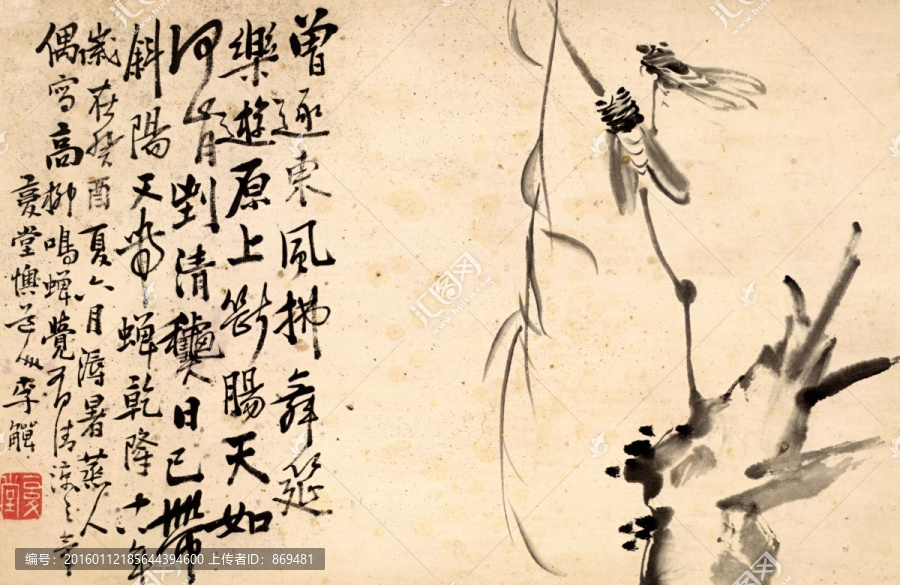 曾逐東風拂舞筵
樂遊原上斷腸天如
何肯到清龝日已帶
斜陽又帶蟬乾隆十八年
歲在癸酉夏六月溽暑蒸人
偶寫高柳鳴蟬覺有清涼之意
复堂懊道人李觶
复堂
汇图网
编号:20160112185644394600 上传者ID:869481